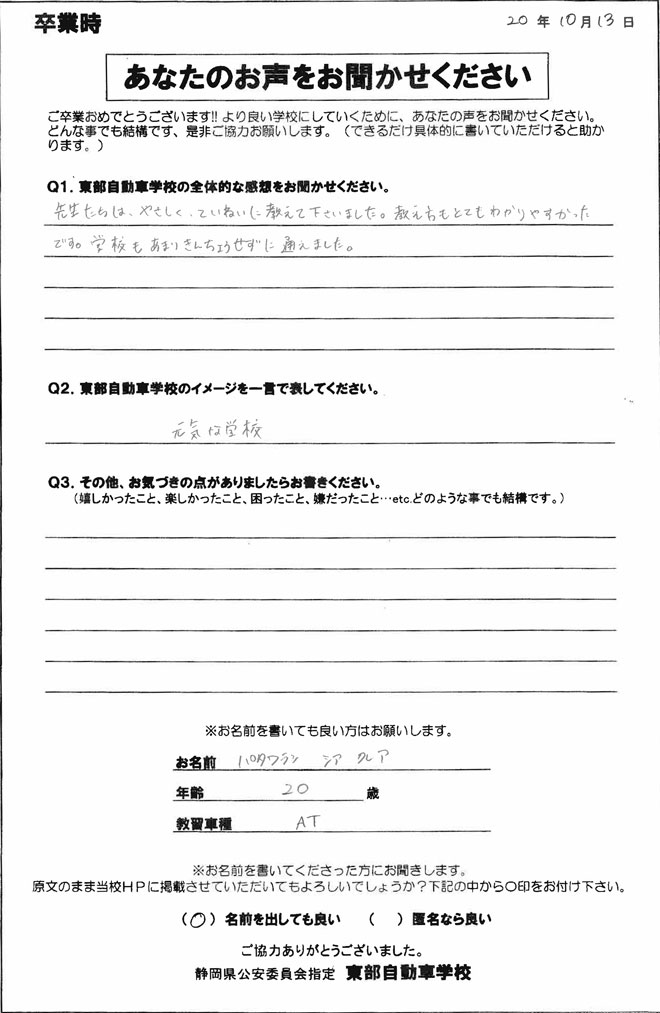 卒業時
20年10月13日
あなたのお声をお聞かせください
ご卒業おめでとうございます!! より良い学校にしていくために、あなたの声をお聞かせください。
どんな事でも結構です、是非ご協力お願いします。（できるだけ具体的に書いていただけると助か
ります。）
Q1. 東部自動車学校の全体的な感想をお聞かせください。
先生たちは、やさしく、ていねいに教えて下さいました。教え方もとてもわかりやすかった
です。学校もあまりきんちょうせずに通えました。
Q2. 東部自動車学校のイメージを一言で表してください。
元気な学校
Q3. その他、お気づきの点がありましたらお書きください。
（嬉しかったこと、楽しかったこと、困ったこと、嫌だったこと…etc.どのような事でも結構です。）
※お名前を書いても良い方はお願いします。
お名前 パタワラン シア クレア
年齢 20 歳
教習車種 AT
※お名前を書いてくださった方にお聞きします。
原文のまま当校HPに掲載させていただいてもよろしいでしょうか？下記の中から○印をお付け下さい。
（○）名前を出しても良い （ ）匿名なら良い
ご協力ありがとうございました。
静岡県公安委員会指定 東部自動車学校